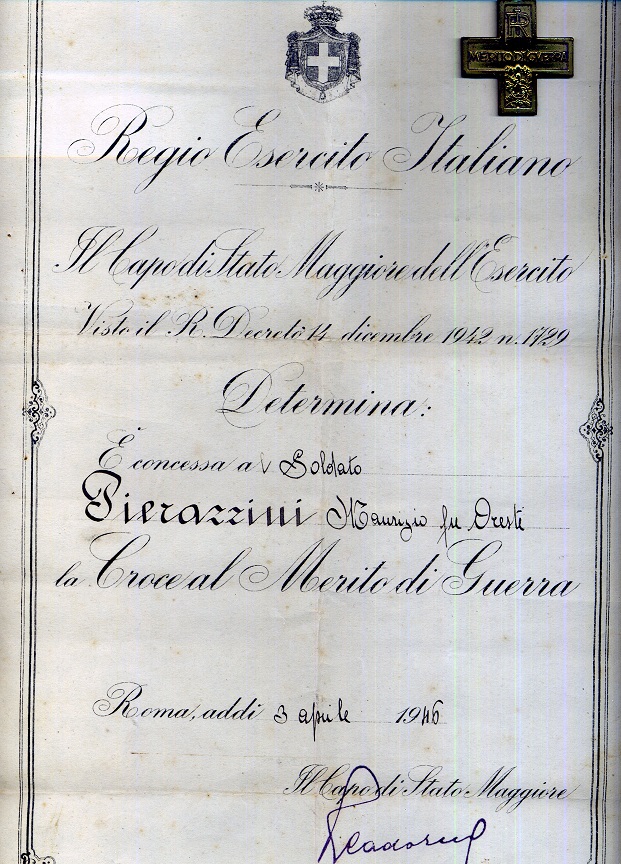 R
MERITO DI GUERRA
Regio Esercito Italiano
Il Capo di Stato Maggiore dell'Esercito
Visto il R. Decreto 14 dicembre 1942 n. 1729
Determina:
È concessa al Soldato
Pierazzini Maurizio fu Oreste
la Croce al Merito di Guerra
Roma, addì 3 aprile 1946
Il Capo di Stato Maggiore
Cadorna